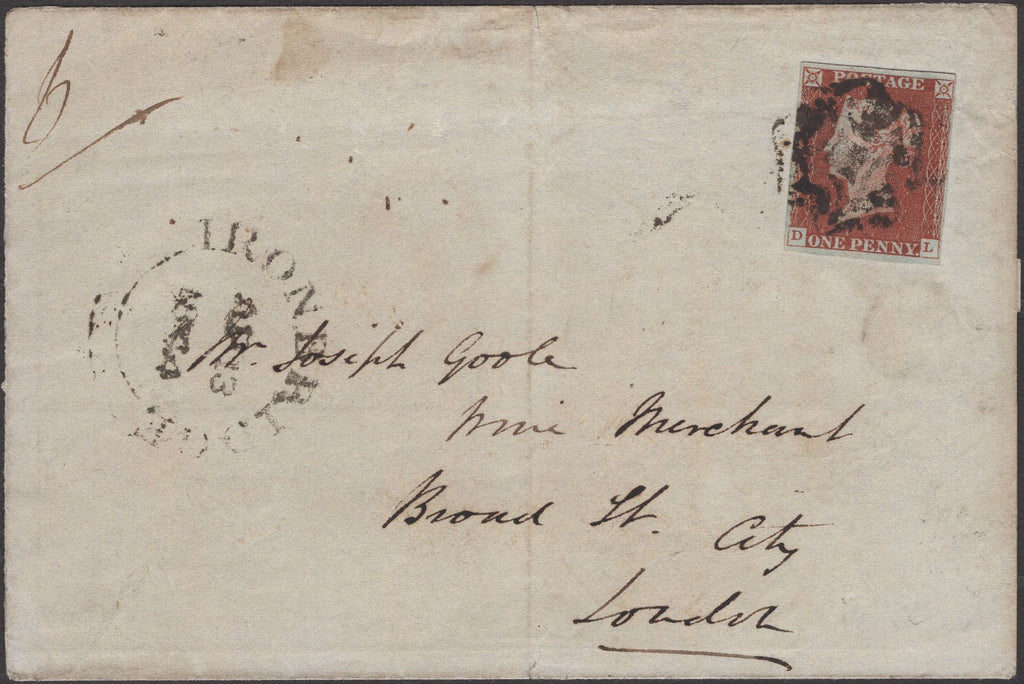 POSTAGE
ONE PENNY.
D L
IRON
Mr. Joseph Goole
Wine Merchant
Broad St. City
London